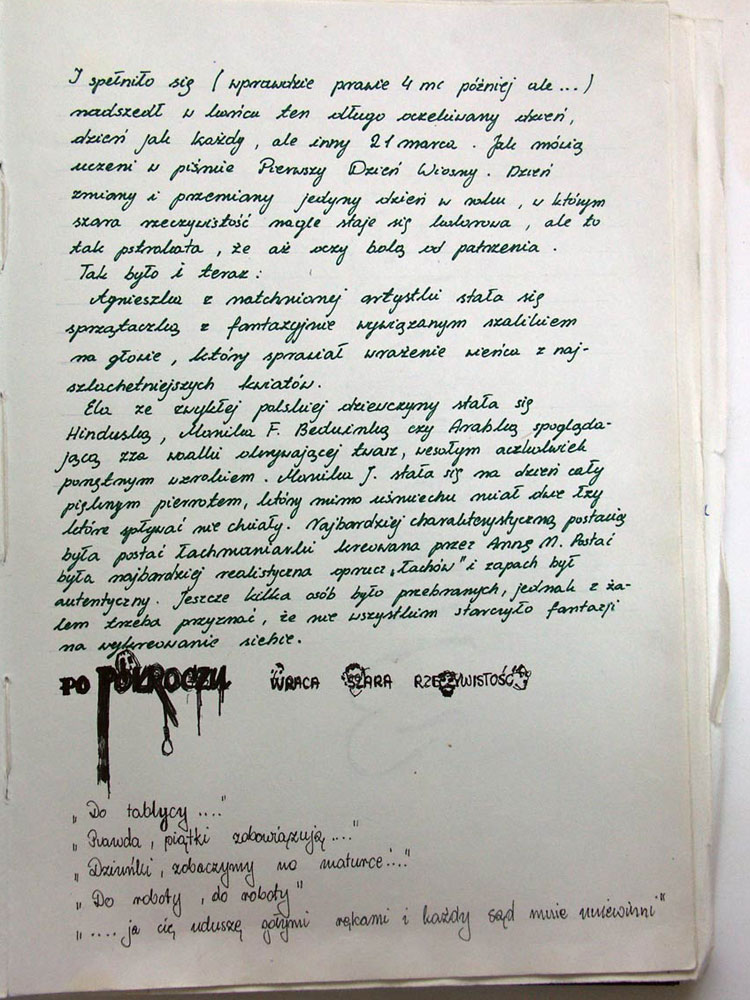 I spełniło się (wprawdzie prawie 4 mc później ale...)
nadszedł w końcu ten długo oczekiwany dzień,
dzień jak każdy, ale inny 21 marca. Jak mówią
uczeni w piśmie Pierwszy Dzień Wiosny. Dzień
zmiany i przemiany jedyny dzień w roku, w którym
szara rzeczywistość nagle staje się kolorowa, ale to
tak pstrokata, że aż oczy bolą od patrzenia.
Tak było i teraz:
Agnieszka z natchnionej artystki stała się
sprzątaczką z fantazyjnie wywiązanym szalikiem
na głowie, który sprawiał wrażenie wieńca z naj-
szlachetniejszych kwiatów.
Ela ze zwykłej polskiej dziewczyny stała się
Hinduską, Monika F. Beduinką czy Arabką spogląda-
jącą zza woalki okrywającej twarz, wesołym aczkolwiek
ponętnym wzrokiem. Monika J. stała się na dzień cały
pięknym pierrotem, który mimo uśmiechu miał dwie łzy
które spływać nie chciały. Najbardziej charakterystyczną postacią
była postać Łachmaniarki kreowana przez Annę M. Postać
była najbardziej realistyczna oprucz „łachów" i zapach był
autentyczny. Jeszcze kilka osób było przebranych, jednak z ża-
lem trzeba przyznać, że nie wszystkim starczyło fantazji
na wykreowanie siebie.
PO PÓŁROCZU WRACA SZARA RZECZYWISTOŚĆ
„Do tablycy ...."
„Prawda, piątki zobowiązują ...."
„Dziuńki, zobaczymy na maturce...."
„Do roboty, do roboty"
„.... ja cię uduszę gołymi rękami i każdy sąd mnie uniewinni"